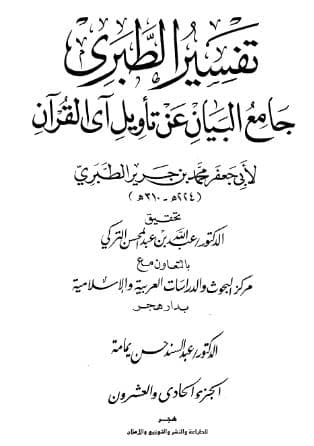 تفسير الطبري
جامع البيان عن تأويل آي القرآن
لأبي جعفر محمد بن جرير الطبري
(٢٢٤هـ - ٣١٠هـ)
تحقيق
الدكتور/ عبد الله بن عبد المحسن التركي
بالتعاون مع
مركز البحوث والدراسات العربية والإسلامية
بدار هجر
الدكتور/ عبد السند حسن يمامة
الجزء الحادي والعشرون
هجر
للطباعة والنشر والتوزيع والإعلان